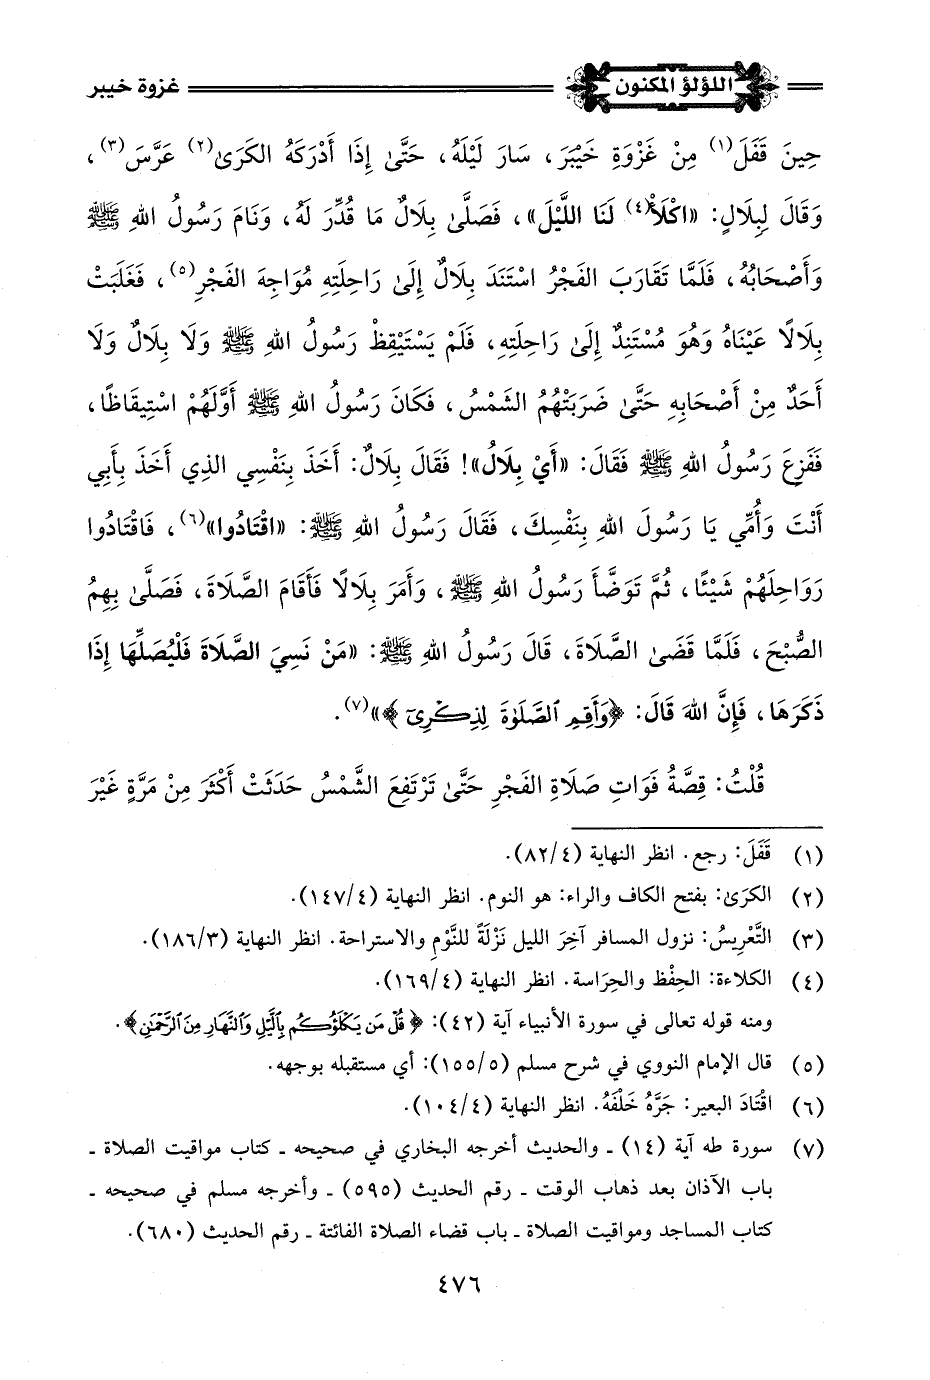 اللؤلؤ المكنون
غزوة خيبر
حِينَ قَفَلَ(١) مِنْ غَزْوَةِ خَيْبَرَ، سَارَ لَيْلَهُ، حَتَّىٰ إِذَا أَدْرَكَهُ الكَرَىٰ(٢) عَرَّسَ(٣)،
وَقَالَ لِبِلَالٍ: «اكْلَأْ(٤) لَنَا اللَّيْلَ»، فَصَلَّىٰ بِلَالٌ مَا قُدِّرَ لَهُ، وَنَامَ رَسُولُ اللهِ ﷺ
وَأَصْحَابُهُ، فَلَمَّا تَقَارَبَ الفَجْرُ اسْتَنَدَ بِلَالٌ إِلَىٰ رَاحِلَتِهِ مُوَاجِهَ الفَجْرِ(٥)، فَغَلَبَتْ
بِلَالًا عَيْنَاهُ وَهُوَ مُسْتَنِدٌ إِلَىٰ رَاحِلَتِهِ، فَلَمْ يَسْتَيْقِظْ رَسُولُ اللهِ ﷺ وَلَا بِلَالٌ وَلَا
أَحَدٌ مِنْ أَصْحَابِهِ حَتَّىٰ ضَرَبَتْهُمُ الشَّمْسُ، فَكَانَ رَسُولُ اللهِ ﷺ أَوَّلَهُمْ اسْتِيقَاظًا،
فَفَزِعَ رَسُولُ اللهِ ﷺ فَقَالَ: «أَيْ بِلَالُ»! فَقَالَ بِلَالٌ: أَخَذَ بِنَفْسِي الذِي أَخَذَ بِأَبِي
أَنْتَ وَأُمِّي يَا رَسُولَ اللهِ بِنَفْسِكَ، فَقَالَ رَسُولُ اللهِ ﷺ: «اقْتَادُوا»(٦)، فَاقْتَادُوا
رَوَاحِلَهُمْ شَيْئًا، ثُمَّ تَوَضَّأَ رَسُولُ اللهِ ﷺ، وَأَمَرَ بِلَالًا فَأَقَامَ الصَّلَاةَ، فَصَلَّىٰ بِهِمُ
الصُّبْحَ، فَلَمَّا قَضَىٰ الصَّلَاةَ، قَالَ رَسُولُ اللهِ ﷺ: «مَنْ نَسِيَ الصَّلَاةَ فَلْيُصَلِّهَا إِذَا
ذَكَرَهَا، فَإِنَّ اللهَ قَالَ: ﴿وَأَقِمِ ٱلصَّلَوٰةَ لِذِكْرِىٓ﴾»(٧).
قُلْتُ: قِصَّةُ فَوَاتِ صَلَاةِ الفَجْرِ حَتَّىٰ تَرْتَفِعَ الشَّمْسُ حَدَثَتْ أَكْثَرَ مِنْ مَرَّةٍ غَيْرَ
(١) قَفَلَ: رجع. انظر النهاية (٨٢/٤).
(٢) الكرَىٰ: بفتح الكاف والراء: هو النوم. انظر النهاية (١٤٧/٤).
(٣) التَّعْرِيسُ: نزول المسافر آخِرَ الليل نَزْلَةً للنَّوْمِ والاستراحة. انظر النهاية (١٨٦/٣).
(٤) الكلاءة: الحِفْظ والحِرَاسة. انظر النهاية (١٦٩/٤).
ومنه قوله تعالى في سورة الأنبياء آية (٤٢): ﴿قُلْ مَن يَكْلَؤُكُم بِٱلَّيْلِ وَٱلنَّهَارِ مِنَ ٱلرَّحْمَٰنِ﴾.
(٥) قال الإمام النووي في شرح مسلم (١٥٥/٥): أي مستقبله بوجهه.
(٦) اقْتَادَ البعير: جَرَّهُ خَلْفَهُ. انظر النهاية (١٠٤/٤).
(٧) سورة طه آية (١٤) ـ والحديث أخرجه البخاري في صحيحه ـ كتاب مواقيت الصلاة ـ
باب الآذان بعد ذهاب الوقت ـ رقم الحديث (٥٩٥) ـ وأخرجه مسلم في صحيحه ـ
كتاب المساجد ومواقيت الصلاة ـ باب قضاء الصلاة الفائتة ـ رقم الحديث (٦٨٠).
٤٧٦